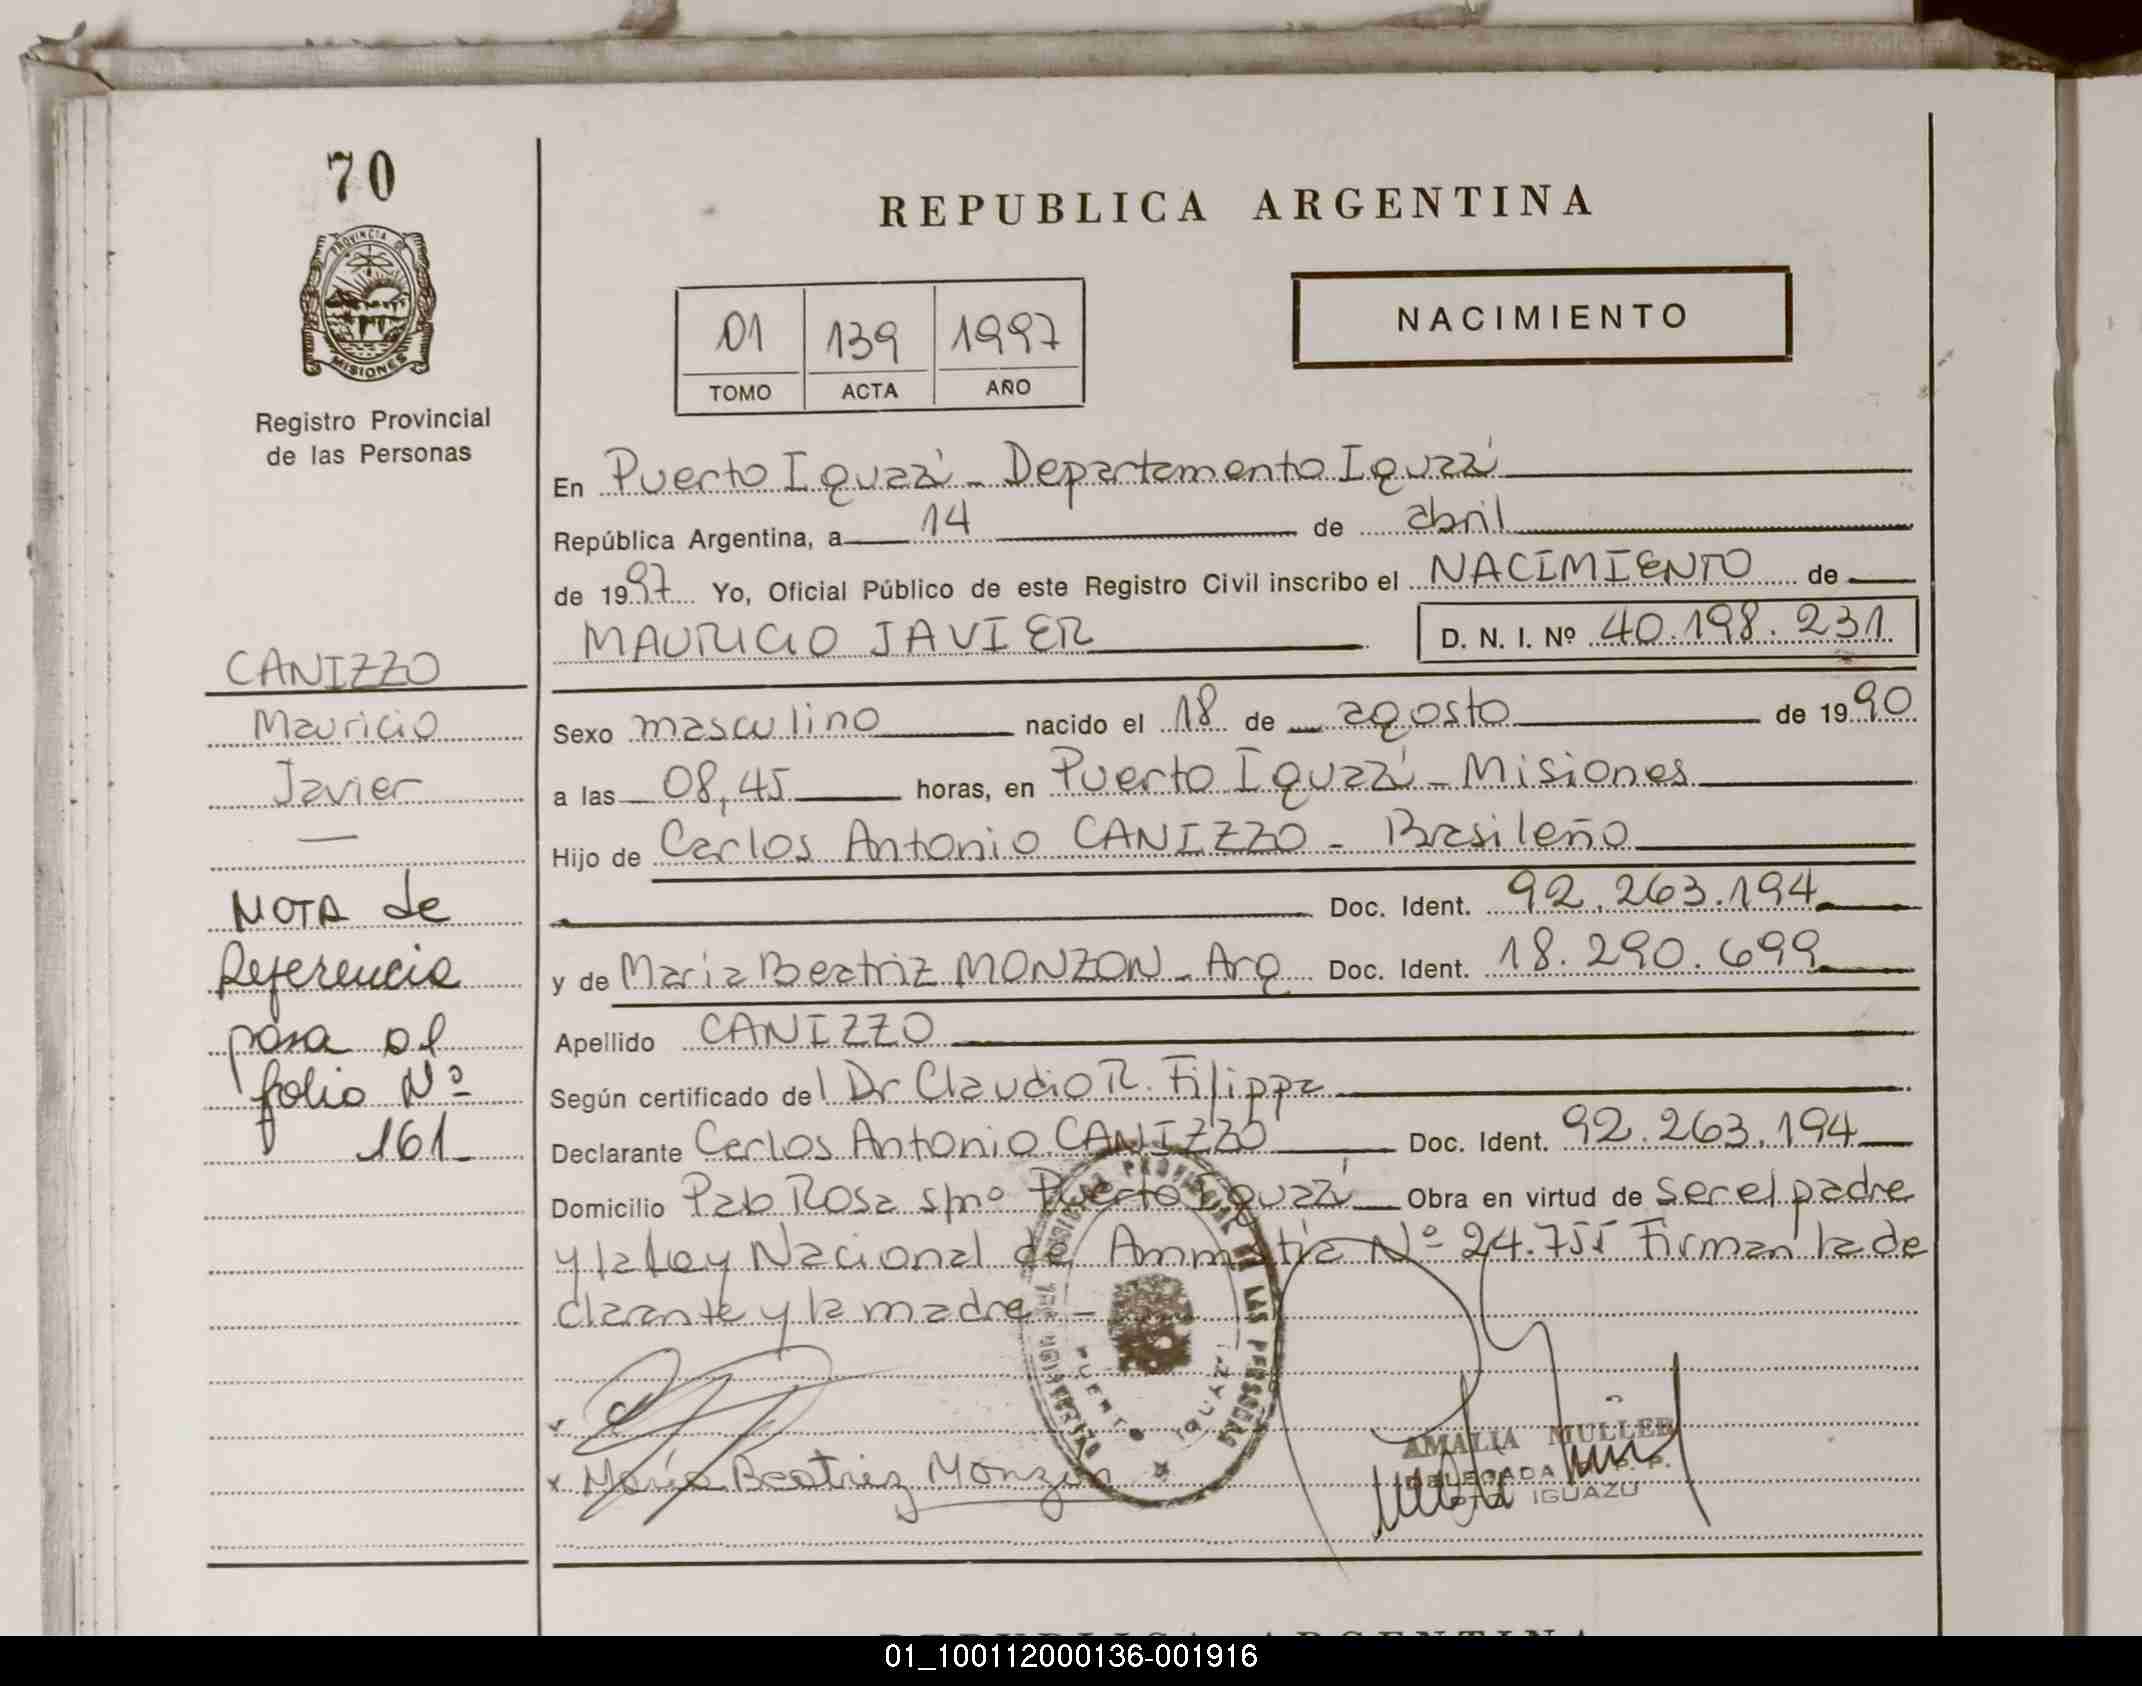 70
PROVINCIA DE
MISIONES
Registro Provincial
de las Personas
REPUBLICA ARGENTINA
01 139 1997
TOMO ACTA AÑO
NACIMIENTO
En Puerto Iguazú - Departamento Iguazú
República Argentina, a 14 de abril
de 1997 Yo, Oficial Público de este Registro Civil inscribo el NACIMIENTO de
MAURICIO JAVIER D. N. I. Nº 40.198.231
CANIZZO
Mauricio
Javier
—
NOTA de
Referencia
pasa al
folio Nº
161
Sexo masculino nacido el 18 de agosto de 1990
a las 08,45 horas, en Puerto Iguazú - Misiones
Hijo de Carlos Antonio CANIZZO - Brasileño
Doc. Ident. 92.263.194
y de María Beatriz MONZON - Arg Doc. Ident. 18.290.699
Apellido CANIZZO
Según certificado del Dr Claudio R. Filippa
Declarante Carlos Antonio CANIZZO Doc. Ident. 92.263.194
Domicilio Palo Rosa s/nº Puerto Iguazú Obra en virtud de ser el padre
y la Ley Nacional de Amnistía Nº 24.755 Firman la de
clarante y la madre -
x María Beatriz Monzón
PROVINCIAL DE LAS PERSONAS
PUERTO IGUAZU
AMALIA MULLER
DELEGADA R. P. P.
IGUAZU
REPUBLICA ARGENTINA
01_100112000136-001916